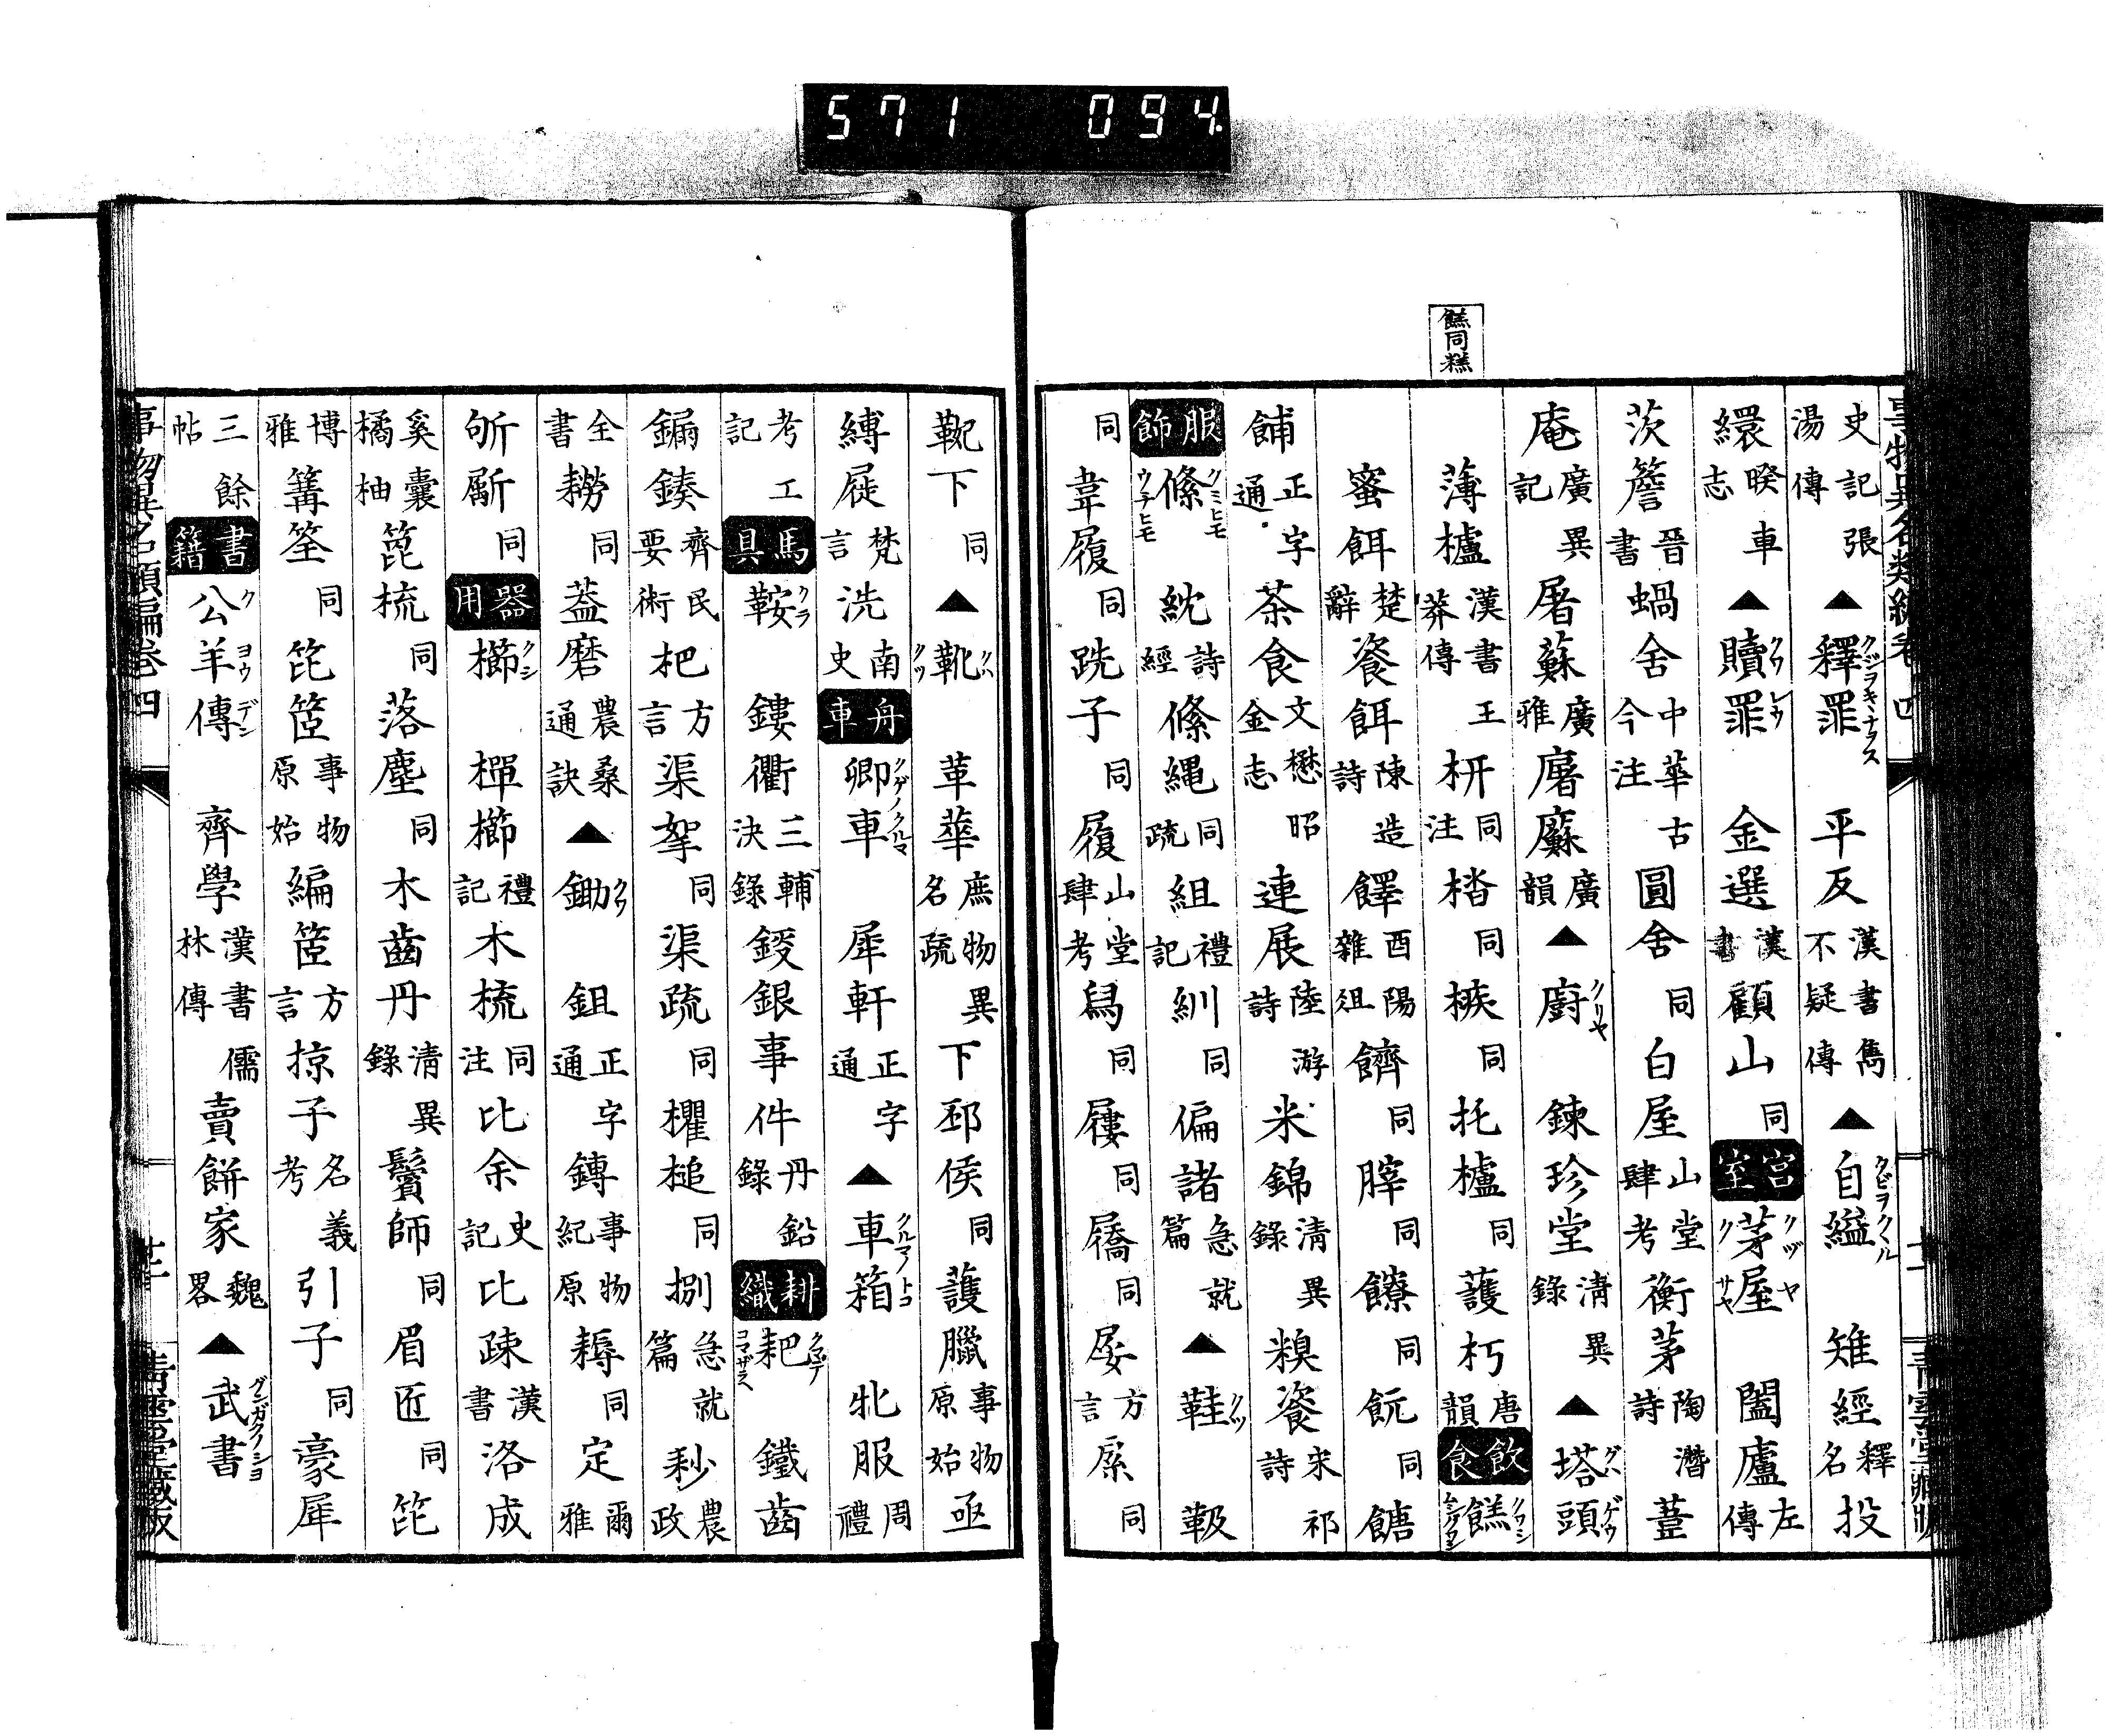 事物異名類編卷四 青雲堂藏版
餻同糕
史記張湯傳 ▲釋罪 クジヲキヽナヲス 平反 漢書雋不疑傳 ▲自縊 クビヲククル 雉經 釋名 投
繯 暌車志 ▲贖罪 クワレウ 金選 漢書 顧山 同 宮室 茅屋 クヅヤ クサヤ 闔廬 左傳
茨簷 晉書 蝸舍 中華古今注 圓舍 同 白屋 山堂肆考 衡茅 陶潛詩 葢
庵 廣異記 屠蘇 廣雅 廜㢝 廣韻 ▲廚 クリヤ 鍊珍堂 清異錄 ▲塔頭
薄櫨 漢書王莽傳 枅 同注 㭼 同 同 托櫨 同 護朽 唐韻 飲食 餻 クワシ
蜜餌 楚辭 餈餌 陳造詩 酉陽雜俎 同 同 同 同 餹
餔 正字通 茶食 文懋昭金志 連展 陸游詩 米錦 清異錄 糗餈 宋祁詩
服飾 絛 クミヒモ ウチヒモ 紞 詩經 絛縄 同疏 組 禮記 紃 同 偏諸 急就篇 ▲鞋 クツ 靸
同 韋履 同 跣子 同 履 山堂肆考 舄 同 屨 同 屩 同 方言 同
下 同 ▲靴 クハクツ 革華 庶物異名疏 下邳侯 同 護臘 事物原始 亟
縛屣 梵言 洗 南史 舟車 卿車 クゲノクルマ 犀軒 正字通 ▲車箱 クルマノトコ 牝服 周禮
考工記 馬具 鞍 クラ 鏤衢 三輔決錄 鋄銀事件 丹鉛錄 耕織 耙 鐵齒
鏰鍨 齊民要術 杷 方言 渠挐 同 渠疏 同 欋槌 同 捌 急就篇 耖 農政
全書 耮 同 葢磨 農桑通訣 ▲鋤 クワ 鉏 正字通 鎛 事物紀原 耨 同 定 爾雅
斪斸 同 器用 櫛 クシ 樿櫛 禮記 木梳 同注 比余 史記 比疎 漢書 洛成
奚囊橘柚 箆梳 同 落塵 同 木齒丹 清異錄 鬢師 同 眉匠 同 笓
博雅 篝筌 同 笓筐 事物原始 編筐 方言 掠子 名義考 引子 同 豪犀
三餘帖 書籍 公羊傳 クヨウデン 齊學 漢書儒林傳 賣餅家 魏畧 ▲武書 グンガクノシヨ
事物異名類編卷四 廿 青雲堂藏版
571 094